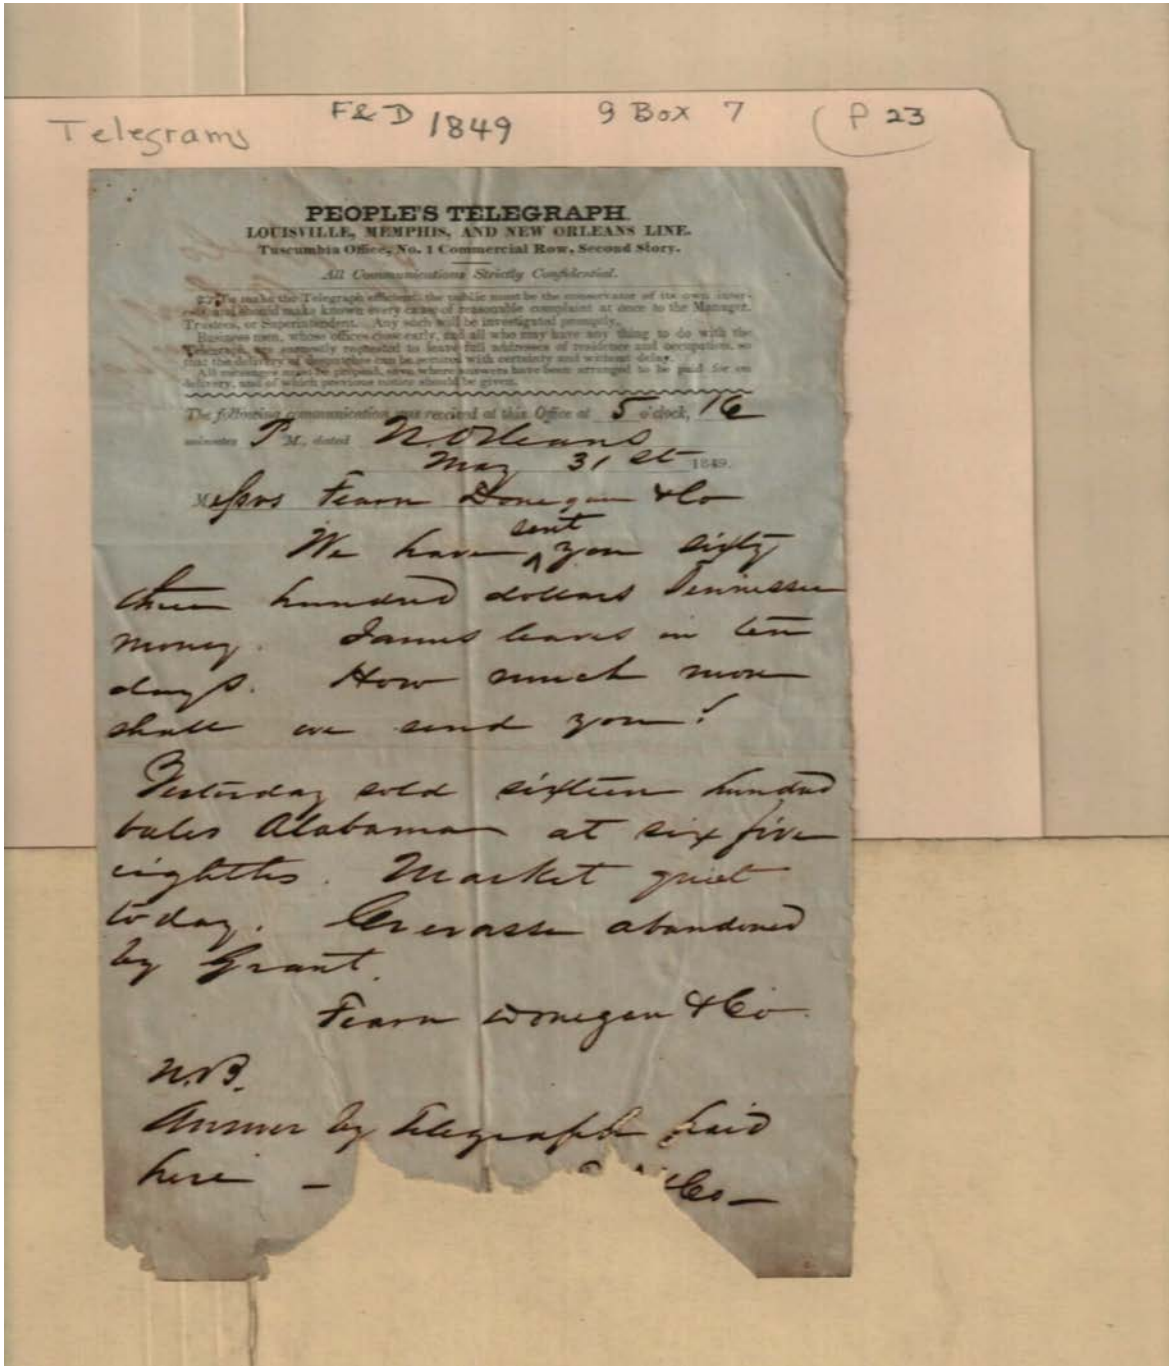 Telegrams F&D 1849 9 Box 7 P 23
PEOPLE'S TELEGRAPH
LOUISVILLE, MEMPHIS, AND NEW ORLEANS LINE.
Tuscumbia Office, No. 1 Commercial Row, Second Story.
All Communications Strictly Confidential.
To make the Telegraph efficient, the public must be the conservator of its own inter-
ests and should make known every cause of reasonable complaint at once to the Manager,
Trustees, or Superintendent. Any such will be investigated promptly.
Business men, whose offices close early, and all who may have any thing to do with the
Telegraph, are earnestly requested to leave full addresses of residence and occupation, so
that the delivery of despatches can be secured with certainty and without delay.
All messages must be prepaid, save where answers have been arranged to be paid for on
delivery, and of which previous notice should be given.
The following communication was received at this Office at 5 o'clock, 16
minutes P M., dated N. Orleans
May 31 st 1849.
Messrs Fearn Donegan & Co
We have sent you sixty
three hundred dollars Tennessee
money. James leaves in ten
days. How much more
shall we send you?
Yesterday sold sixteen hundred
bales Alabamas at six five
eighths. Market quiet
today. Crevasse abandoned
by Grant.
Fearn Donegan & Co
N.B.
Answer by Telegraph paid
here – Co –